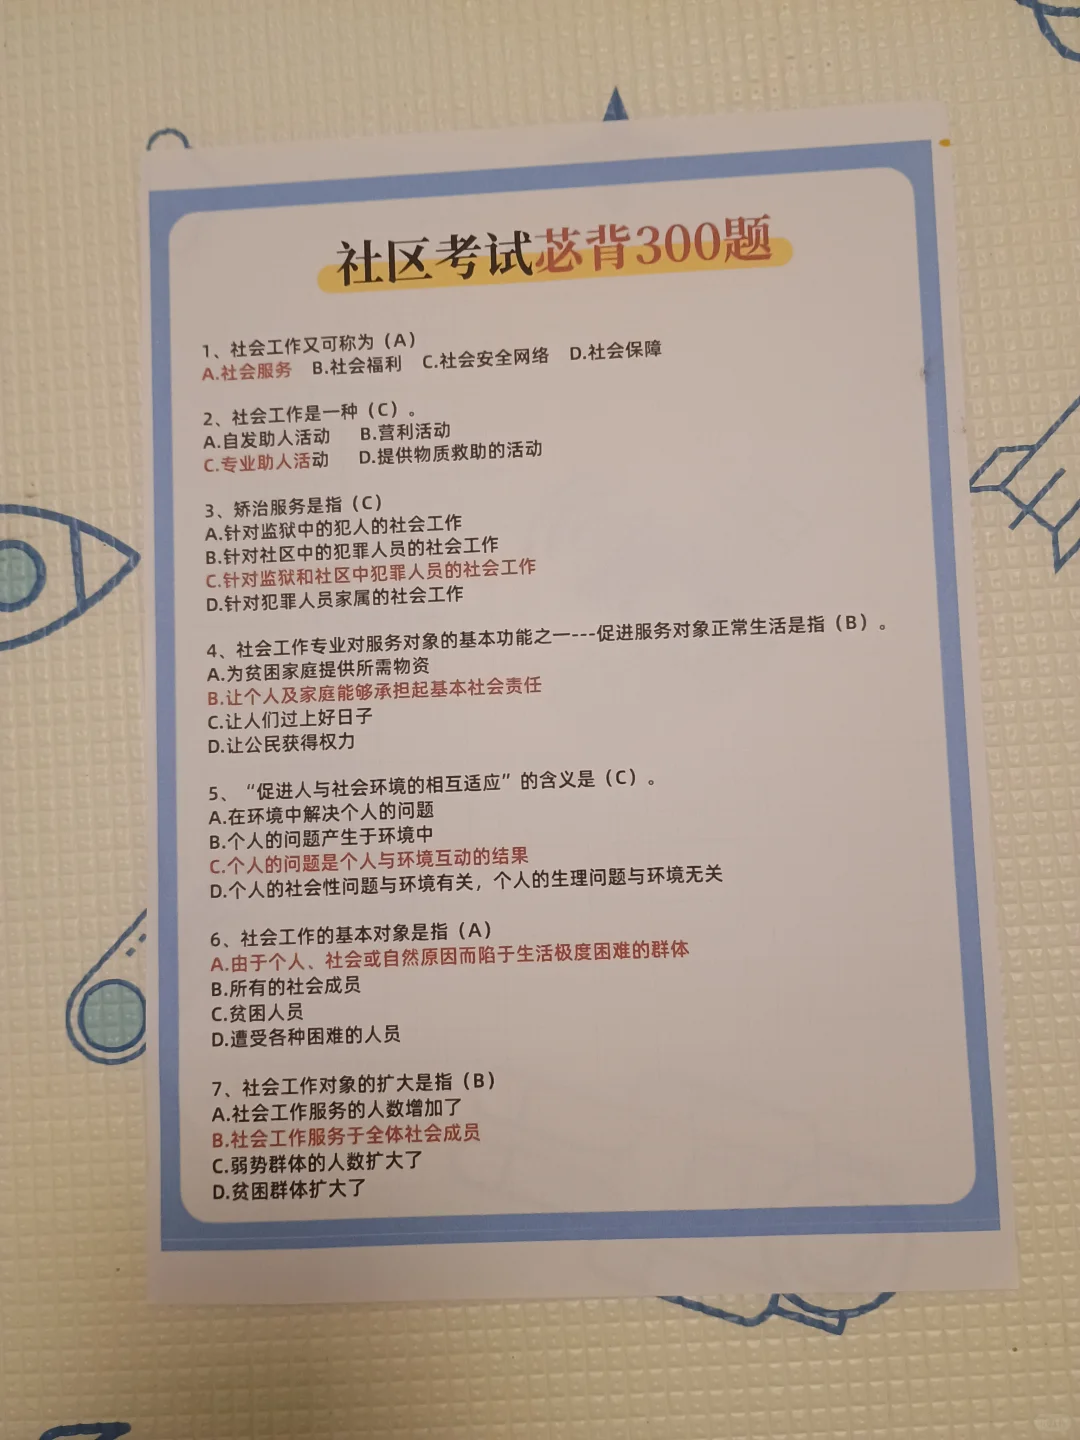 社区考试苾背300题
1、社会工作又可称为（A）
A.社会服务 B.社会福利 C.社会安全网络 D.社会保障
2、社会工作是一种（C）。
A.自发助人活动 B.营利活动
C.专业助人活动 D.提供物质救助的活动
3、矫治服务是指（C）
A.针对监狱中的犯人的社会工作
B.针对社区中的犯罪人员的社会工作
C.针对监狱和社区中犯罪人员的社会工作
D.针对犯罪人员家属的社会工作
4、社会工作专业对服务对象的基本功能之一---促进服务对象正常生活是指（B）。
A.为贫困家庭提供所需物资
B.让个人及家庭能够承担起基本社会责任
C.让人们过上好日子
D.让公民获得权力
5、“促进人与社会环境的相互适应”的含义是（C）。
A.在环境中解决个人的问题
B.个人的问题产生于环境中
C.个人的问题是个人与环境互动的结果
D.个人的社会性问题与环境有关，个人的生理问题与环境无关
6、社会工作的基本对象是指（A）
A.由于个人、社会或自然原因而陷于生活极度困难的群体
B.所有的社会成员
C.贫困人员
D.遭受各种困难的人员
7、社会工作对象的扩大是指（B）
A.社会工作服务的人数增加了
B.社会工作服务于全体社会成员
C.弱势群体的人数扩大了
D.贫困群体扩大了